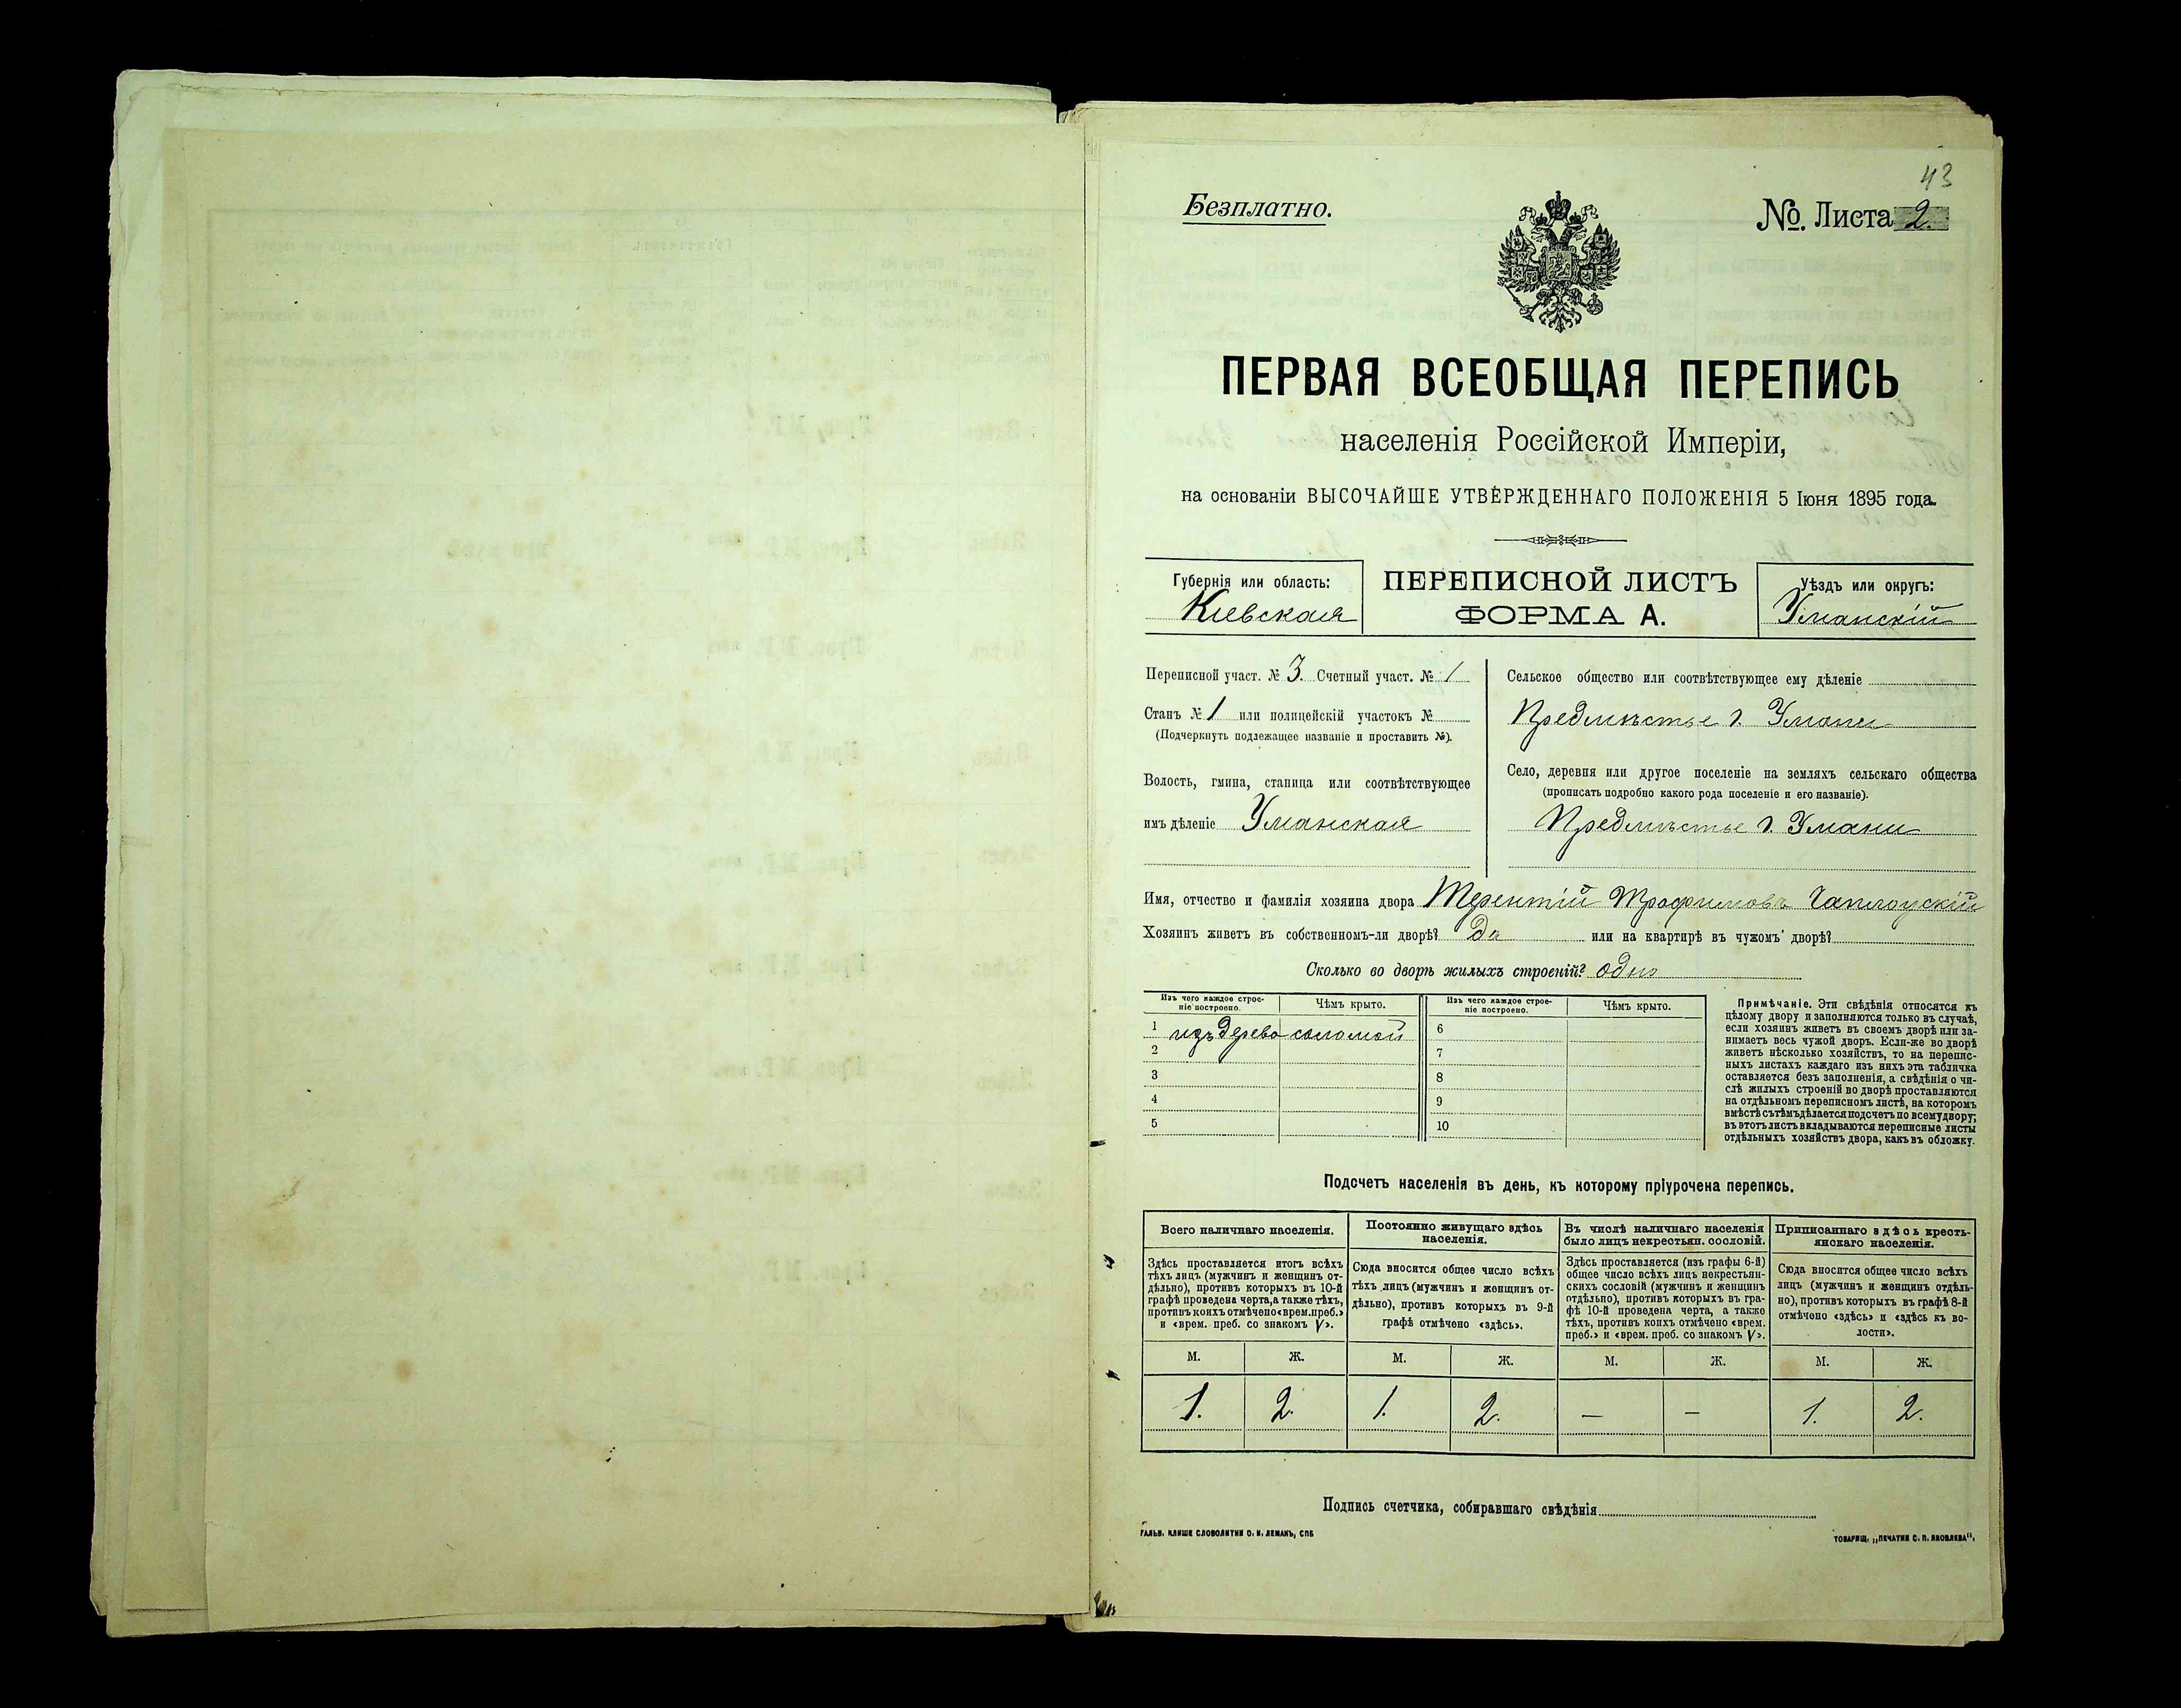 43
Безплатно.
№. Листа 2.
ПЕРВАЯ ВСЕОБЩАЯ ПЕРЕПИСЬ
населенія Россійской Имперіи,
на основаніи ВЫСОЧАЙШЕ УТВЕРЖДЕННАГО ПОЛОЖЕНІЯ 5 Іюня 1895 года.
Губернія или область:
Кіевская
ПЕРЕПИСНОЙ ЛИСТЪ
ФОРМА А.
Уѣздъ или округъ:
Уманскій
Переписной участ. № 3. Счетный участ. № 1
Станъ № 1 или полицейскій участокъ №
(Подчеркнуть подлежащее названіе и проставить №).
Волость, гмина, станица или соотвѣтствующее
имъ дѣленіе Уманская
Сельское общество или соотвѣтствующее ему дѣленіе
Предмѣстье г. Умани
Село, деревня или другое поселеніе на земляхъ сельскаго общества
(прописать подробно какого рода поселеніе и его названіе).
Предмѣстье г. Умани
Имя, отчество и фамилія хозяина двора Терентій Трофимовъ
Хозяинъ живетъ въ собственномъ-ли дворѣ? Да или на квартирѣ въ чужомъ дворѣ?
Сколько во дворѣ жилыхъ строеній? одно
Изъ чего каждое строе-
ніе построено.
Чѣмъ крыто.
Изъ чего каждое строе-
ніе построено.
Чѣмъ крыто.
1 изъ дерева соломой
2
3
4
5
6
7
8
9
10
Примѣчаніе. Эти свѣдѣнія относятся къ
цѣлому двору и заполняются только въ случаѣ,
если хозяинъ живетъ въ своемъ дворѣ или за-
нимаетъ весь чужой дворъ. Если-же во дворѣ
живетъ нѣсколько хозяйствъ, то на перепис-
ныхъ листахъ каждаго изъ нихъ эта табличка
оставляется безъ заполненія, а свѣдѣнія о чи-
слѣ жилыхъ строеній во дворѣ проставляются
на отдѣльномъ переписномъ листѣ, на которомъ
вмѣстѣ съ тѣмъ дѣлается подсчетъ по всему двору;
въ этотъ листъ вкладываются переписные листы
отдѣльныхъ хозяйствъ двора, какъ въ обложку.
Подсчетъ населенія въ день, къ которому пріурочена перепись.
Всего наличнаго населенія.
Здѣсь проставляется итогъ всѣхъ
тѣхъ лицъ (мужчинъ и женщинъ от-
дѣльно), противъ которыхъ въ 10-й
графѣ проведена черта, а также тѣхъ,
противъ коихъ отмѣчено «врем. преб.»
и «врем. преб. со знакомъ V».
Постоянно живущаго здѣсь
населенія.
Сюда вносится общее число всѣхъ
тѣхъ лицъ (мужчинъ и женщинъ от-
дѣльно), противъ которыхъ въ 9-й
графѣ отмѣчено «здѣсь».
Въ числѣ наличнаго населенія
было лицъ некрестьян. сословій.
Здѣсь проставляется (изъ графы 6-й)
общее число всѣхъ лицъ некрестьян-
скихъ сословій (мужчинъ и женщинъ
отдѣльно), противъ которыхъ въ гра-
фѣ 10-й проведена черта, а также
тѣхъ, противъ коихъ отмѣчено «врем.
преб.» и «врем. преб. со знакомъ V».
Приписаннаго здѣсь кресть-
янскаго населенія.
Сюда вносится общее число всѣхъ
лицъ (мужчинъ и женщинъ отдѣль-
но), противъ которыхъ въ графѣ 8-й
отмѣчено «здѣсь» и «здѣсь къ во-
лости».
М. Ж. М. Ж. М. Ж. М. Ж.
1. 2. 1. 2. — — 1. 2.
Подпись счетчика, собиравшаго свѣдѣнія
ГАЛЬВ. КЛИШЕ СЛОВОЛИТНИ О. И. ЛЕМАНЪ, СПБ
ТОВАРИЩ. „ПЕЧАТНЯ С. П. ЯКОВЛЕВА“.